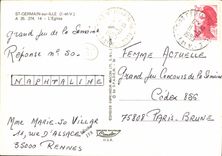 ST-GERMAIN-sur-ILLE (I.-et-V.)
A 35. 274. 14 - L'Église
Grand Jeu de la Semaine
Réponse n° 50.
NAPHTALINE
Mme Marie-Jo VILLAR
11, rue D'ALSACE
35000 RENNES
FEMME ACTUELLE
Grand Jeu Concours de la Semaine
Cedex 886
75808 PARIS-BRUNE